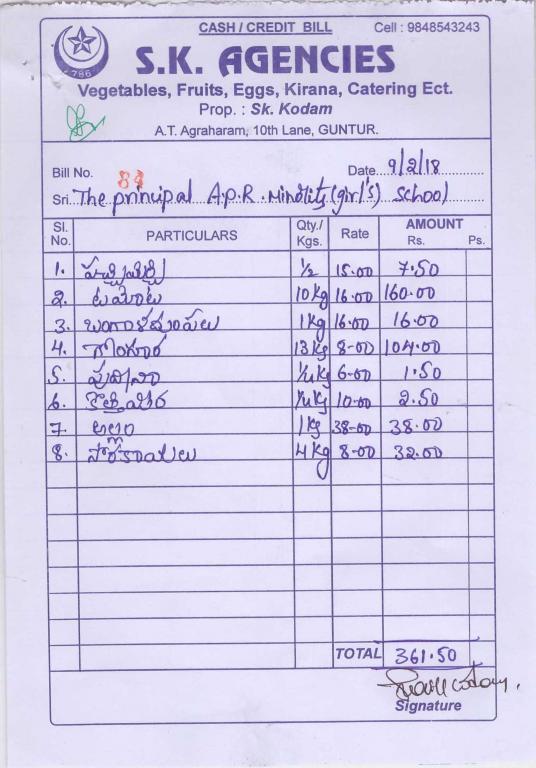 CASH / CREDIT BILL Cell : 9848543243
786
S.K. AGENCIES
Vegetables, Fruits, Eggs, Kirana, Catering Ect.
Prop. : Sk. Kodam
A.T. Agraharam, 10th Lane, GUNTUR.
Bill No. 84 Date 9/2/18
Sri. The principal A.P.R. Minority (girl's) school
Sl. No. PARTICULARS Qty./ Kgs. Rate AMOUNT Rs. Ps.
1. పచ్చిమిర్చి 1/2 15.00 7.50
2. టమోట 10 kg 16.00 160.00
3. బంగాళదుంపలు 1 kg 16.00 16.00
4. గోంగూర 13 kg 8-00 104.00
5. పుదీనా 1/4 kg 6-00 1.50
6. కొత్తిమీర 1/4 kg 10-00 2.50
7. అల్లం 1 kg 38-00 38.00
8. సొరకాయలు 4 kg 8-00 32.00
TOTAL 361.50
Signature